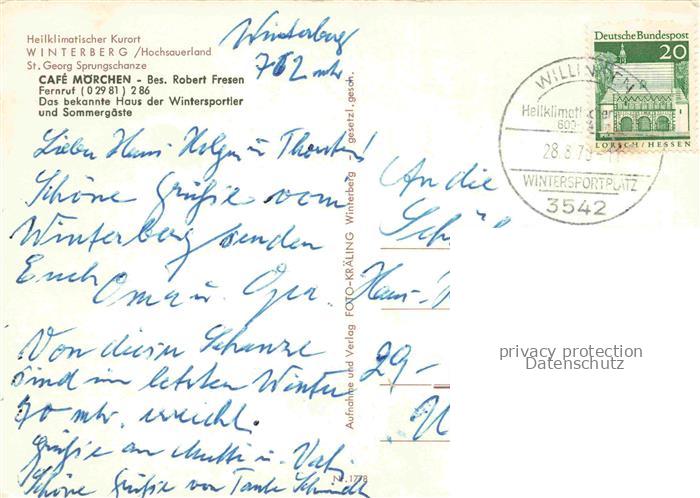 Heilklimatischer Kurort
WINTERBERG /Hochsauerland
St. Georg Sprungschanze
CAFÉ MÖRCHEN - Bes. Robert Fresen
Fernruf (02981) 286
Das bekannte Haus der Wintersportler
und Sommergäste
Winterberg
762 mtr
Lieber Hans-Holger u Thorsten!
Schöne Grüße vom
Winterberg senden
Euch
Oma u. Opa.
Von dieser Schanze
sind im letzten Winter
70 mtr. erreicht.
Grüße an Mutti u. Vati.
Schöne Grüße von Tante Schmidt
Aufnahme und Verlag FOTO-KRÄLING Winterberg gesetzl. gesch.
Nr. 1778
An die
Sch
Hans-
29-
Deutsche Bundespost
20
LORSCH/HESSEN
WILLINGEN
Heilklimatischer
600-
28.8.7
WINTERSPORTPLATZ
3542
privacy protection
Datenschutz